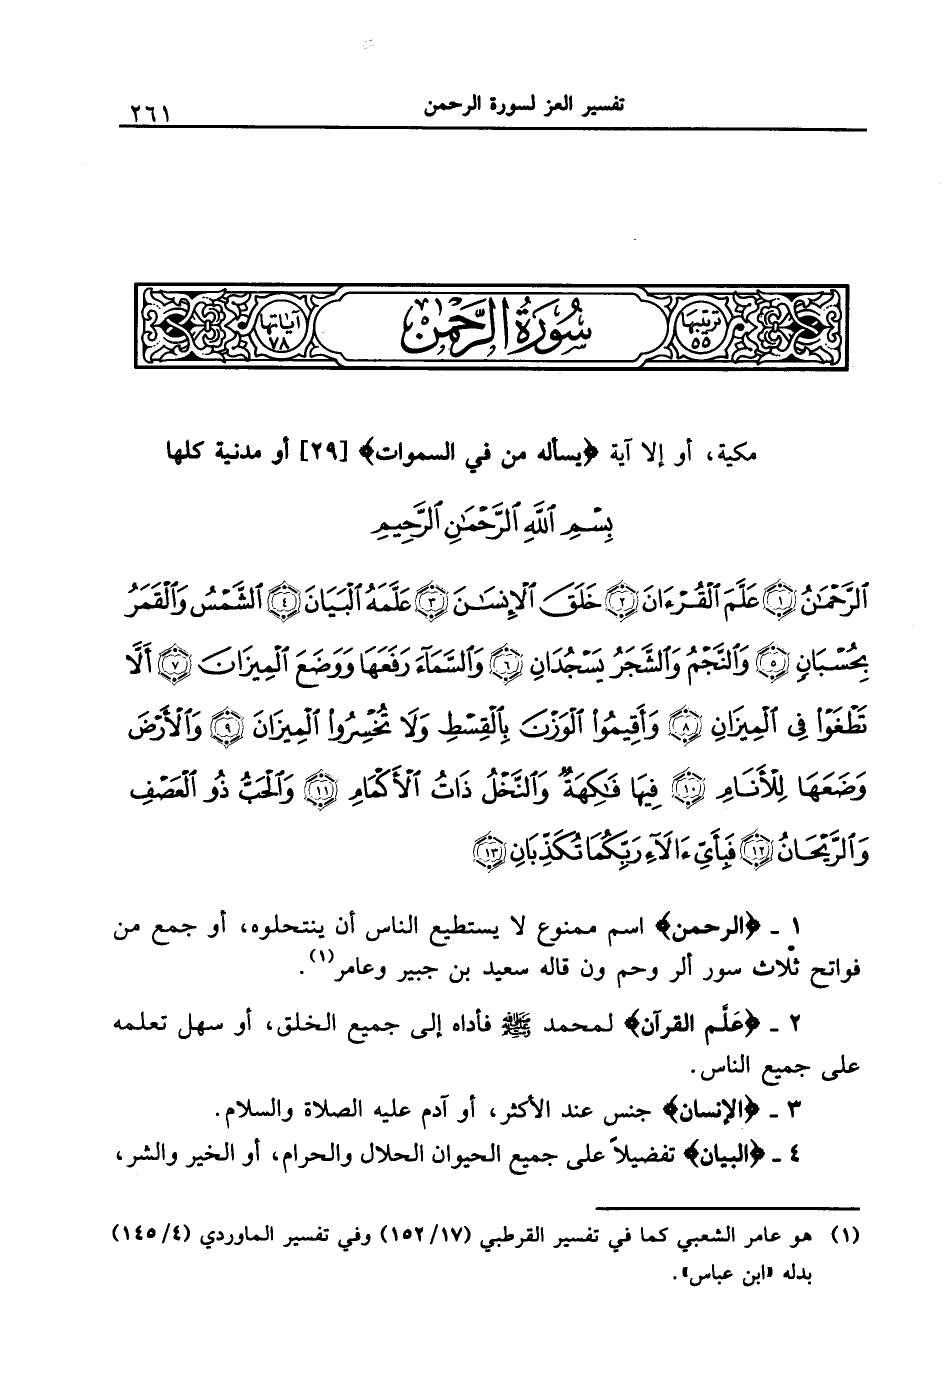 تفسير العز لسورة الرحمن
٢٦١
ترتيبها ٥٥
سُورَةُ الرَّحْمٰنِ
آياتها ٧٨
مكية، أو إلا آية ﴿يسأله من في السموات﴾ [٢٩] أو مدنية كلها
بِسْمِ ٱللَّهِ ٱلرَّحْمَٰنِ ٱلرَّحِيمِ
ٱلرَّحْمَٰنُ ﴿١﴾ عَلَّمَ ٱلْقُرْءَانَ ﴿٢﴾ خَلَقَ ٱلْإِنسَٰنَ ﴿٣﴾ عَلَّمَهُ ٱلْبَيَانَ ﴿٤﴾ ٱلشَّمْسُ وَٱلْقَمَرُ
بِحُسْبَانٍ ﴿٥﴾ وَٱلنَّجْمُ وَٱلشَّجَرُ يَسْجُدَانِ ﴿٦﴾ وَٱلسَّمَآءَ رَفَعَهَا وَوَضَعَ ٱلْمِيزَانَ ﴿٧﴾ أَلَّا
تَطْغَوْا۟ فِى ٱلْمِيزَانِ ﴿٨﴾ وَأَقِيمُوا۟ ٱلْوَزْنَ بِٱلْقِسْطِ وَلَا تُخْسِرُوا۟ ٱلْمِيزَانَ ﴿٩﴾ وَٱلْأَرْضَ
وَضَعَهَا لِلْأَنَامِ ﴿١٠﴾ فِيهَا فَٰكِهَةٌ وَٱلنَّخْلُ ذَاتُ ٱلْأَكْمَامِ ﴿١١﴾ وَٱلْحَبُّ ذُو ٱلْعَصْفِ
وَٱلرَّيْحَانُ ﴿١٢﴾ فَبِأَىِّ ءَالَآءِ رَبِّكُمَا تُكَذِّبَانِ ﴿١٣﴾
١ ـ ﴿الرحمن﴾ اسم ممنوع لا يستطيع الناس أن ينتحلوه، أو جمع من
فواتح ثلاث سور ألر وحم ون قاله سعيد بن جبير وعامر(١).
٢ ـ ﴿عَلَّم القرآن﴾ لمحمد ﷺ فأداه إلى جميع الخلق، أو سهل تعلمه
على جميع الناس.
٣ ـ ﴿الإنسان﴾ جنس عند الأكثر، أو آدم عليه الصلاة والسلام.
٤ ـ ﴿البيان﴾ تفضيلاً على جميع الحيوان الحلال والحرام، أو الخير والشر،
(١) هو عامر الشعبي كما في تفسير القرطبي (١٥٢/١٧) وفي تفسير الماوردي (١٤٥/٤)
بدله «ابن عباس».